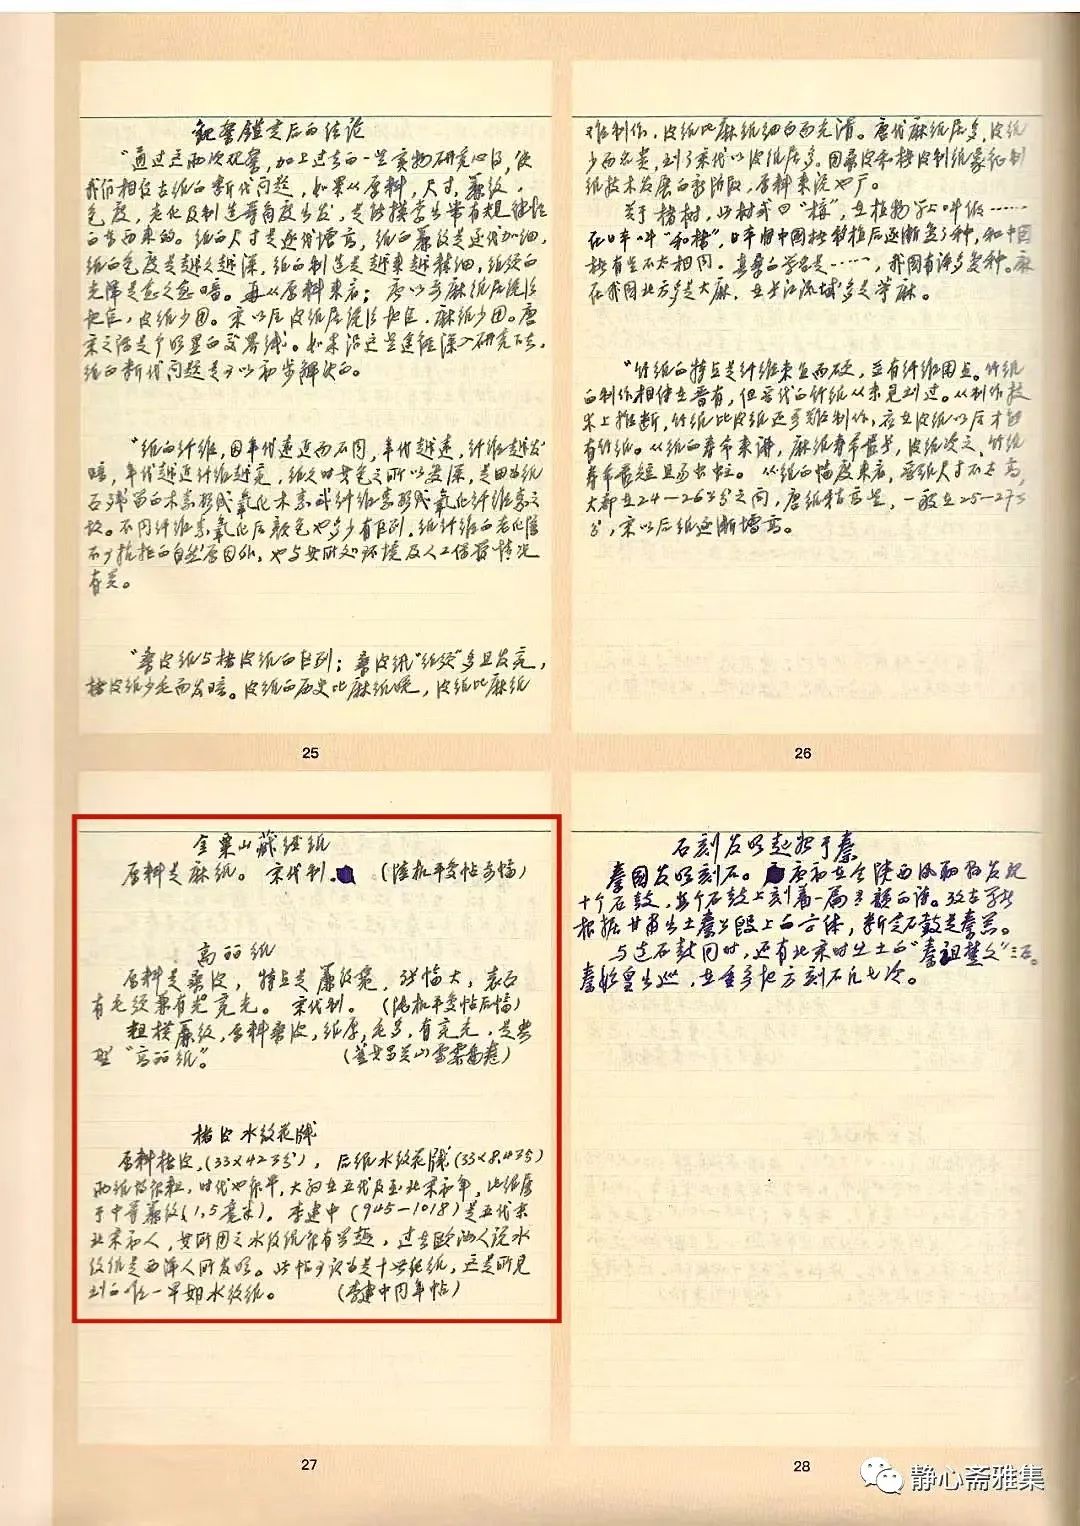 观察鉴定后的结论
"通过这两次观察，加上过去的一些实物研究心得，使
我们相信古纸的断代问题，如果从原料，尺寸，簾纹，
色度，老化及制造等角度出发，是能摸索出带有规律性
的东西来的。纸的尺寸是逐代增高，纸的簾纹是逐代加细，
纸的色度是越久越深，纸的制造是越来越精细，纸纹的
光泽是愈久愈暗。再从原料来看；唐以前麻纸居统治
地位，皮纸少用。宋以后皮纸居统治地位，麻纸少用。唐
宋之际是个明显的交界线。如果沿这些途径深入研究下去，
纸的断代问题是可以初步解决的。
"纸的纤维，因年代远近而不同，年代越远，纤维越发
暗，年代越近纤维越亮，纸之时其色之所以变深，是因为纸
内残留的木素形成氧化木素或纤维素形成氧化纤维素之
故。不同纤维素氧化后颜色也多少有区别，纸纤维的老化除
不可抗拒的自然原因外，也与其所处环境及人工保管情况
有关。
"桑皮纸与楮皮纸的区别；桑皮纸"纸纹"多且发亮，
楮皮纸少毛而发暗。皮纸的历史比麻纸晚，皮纸比麻纸
25
难制作，皮纸比麻纸细白而光滑。唐代麻纸居多，皮纸
少而名贵，到了宋代以皮纸居多。用桑皮和楮皮制纸象征制
纸技术发展的新阶段，原料来源也广。
关于楮树，此树或曰"構"，在植物学上叫做……
在日本叫"和楮"，日本自中国楮移植后逐渐变了种，和中国
楮有些不太相同。真桑的学名是……，我国有许多变种。麻
在我国北方多是大麻，在长江流域多是苧麻。
"竹纸的特点是纤维束短而硬，并有纤维团点。竹纸
的制作相传在晋有，但晋代的竹纸从未见到过。从制作技
术上推断，竹纸比皮纸还要难制作，应在皮纸以后才能
有竹纸。从纸的寿命来讲，麻纸寿命最长，皮纸次之，竹纸
寿命最短且易虫蛀。从纸的幅度来看，晋纸尺寸不太高，
大都在24-26公分之间，唐纸稍高些，一般在25-27公
分，宋以后纸逐渐增高。
26
金粟山藏经纸
原料是麻纸。宋代制。（陆机平复帖前幅）
高丽纸
原料是桑皮，特点是簾纹宽，张幅大，表面
有毛纹兼有光亮光。宋代制。（陆机平复帖后幅）
粗横簾纹，原料桑皮，纸厚，毛多，有亮光，是典
型"高丽纸"。（董其昌关山雪霁图卷）
楮皮水纹花牋
原料楮皮，(33×42公分)，后纸水纹花牋(33×8.4公分)
两纸均很粗，时代也很早，大约在五代及至北宋初年，此纸属
于中等簾纹(1.5毫米)。李建中(945-1018)是五代末
北宋初人，其所用之水纹纸很有兴趣，过去欧洲人说水
纹纸是西洋人所发明。此帖可认为是十世纪纸，这是所见
到的唯一早期水纹纸。（李建中同年帖）
27
石刻发明起始于秦
秦国发明刻石。唐初在今陕西凤翔县发现
十个石鼓，每个石鼓上刻着一篇有韵的诗。考古学者
根据甘肃出土秦公段上的字体，断定石鼓是秦器。
与这石鼓同时，还有北宋时出土的"秦诅楚文"三石。
秦始皇出巡，在各地方刻石凡七次。
28
静心斋雅集